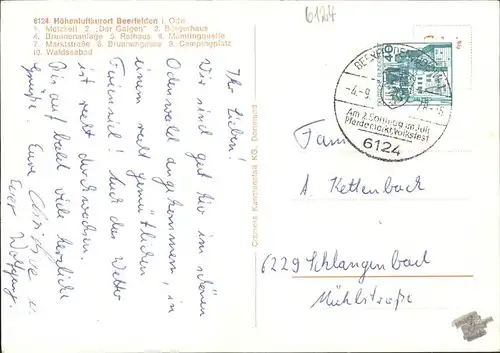 6124 Höhenluftkurort Beerfelden i. Odw.
1. Motzkeil 2. „Der Galgen" 3. Bürgerhaus
4. Brunnenanlage 5. Rathaus 6. Mümlingquelle
7. Marktstraße 8. Brunnengasse 9. Campingplatz
10. Waldseebad
6124
Ihr Lieben!
Wir sind gut hier im schönen
Odenwald angekommen, in
einem recht gemütlichen
Ferienziel! Auch das Wetter
ist recht durchwachsen.
Bis auf bald viele herzliche
Grüße! Eure Christa u.
Euer Wolfgang.
Cramers Kunstanstalt KG, Dortmund
40
-4.-9.
Am 2. Sonntag im Juli
Pferdemarkt Volksfest
6124
Fam
A. Kettenbach
6229 Schlangenbad
Mühlstraße